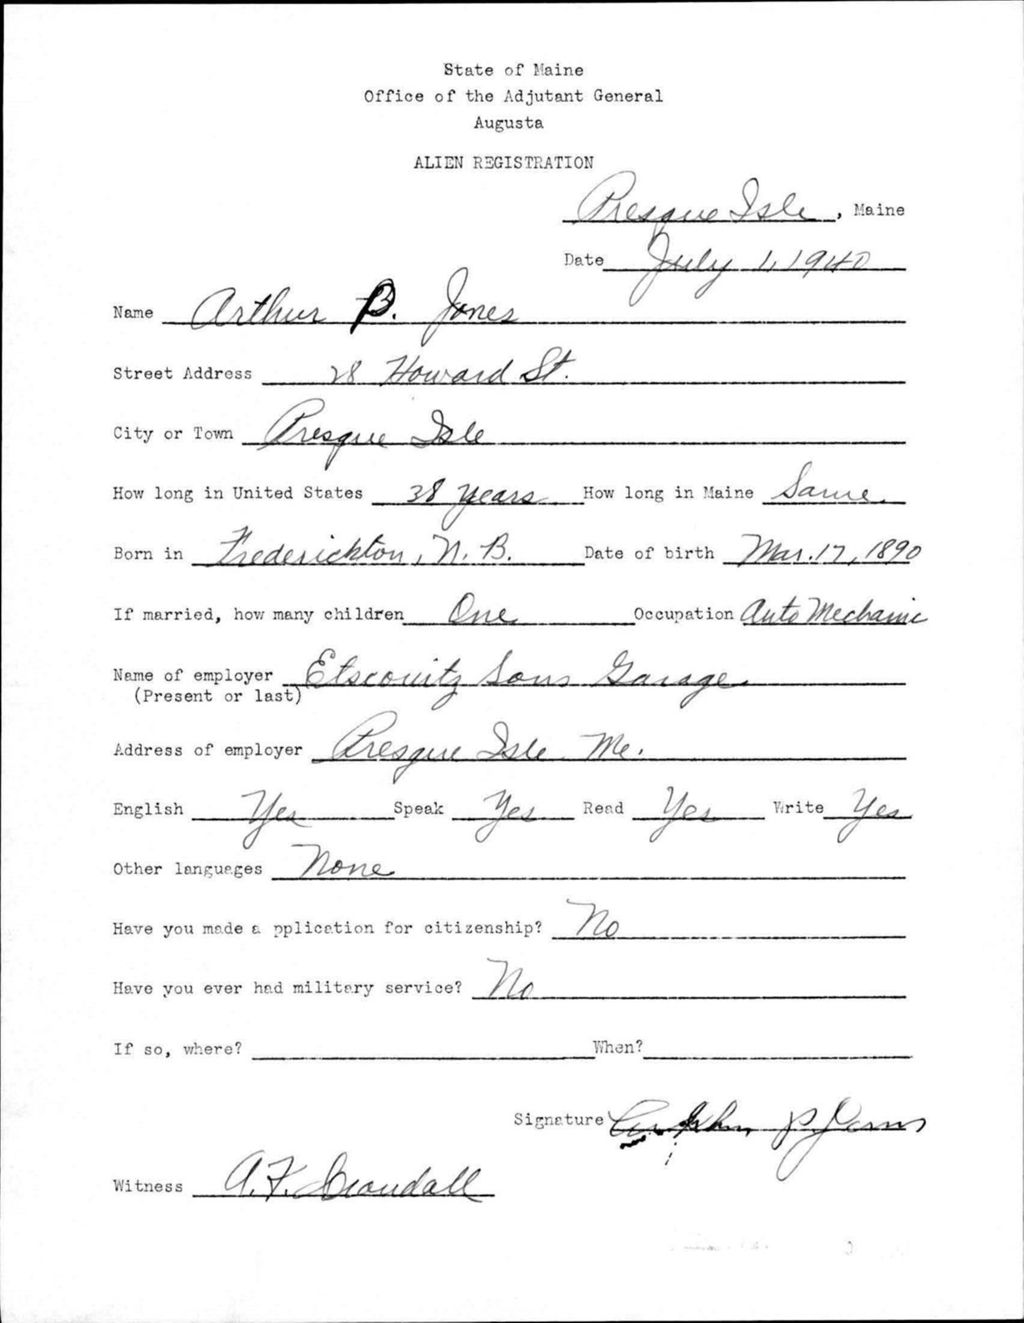 State of Maine
Office of the Adjutant General
Augusta
ALIEN REGISTRATION
Presque Isle, Maine
Date July 1, 1940
Name Arthur B. Jones
Street Address 28 Howard St.
City or Town Presque Isle
How long in United States 38 years How long in Maine Same
Born in Frederickton, N. B. Date of birth Mar. 17, 1890
If married, how many children One Occupation Auto Mechanic
Name of employer Etscovitz Sons Garage.
(Present or last)
Address of employer Presque Isle Me.
English Yes Speak Yes Read Yes Write Yes
Other languages None
Have you made a pplication for citizenship? No
Have you ever had military service? No
If so, where? When?
Signature Arthur P. Jones
Witness A. F. Crandall